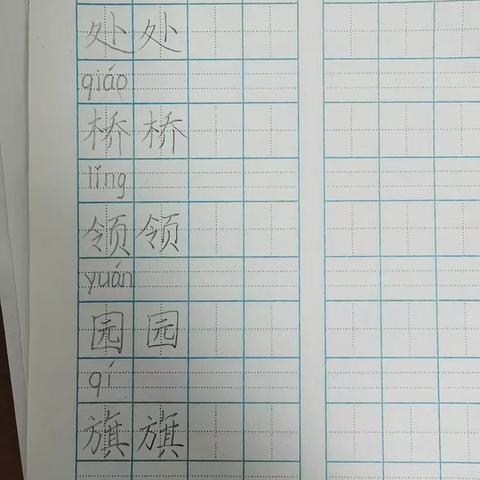 处处
qiáo
桥桥
lǐng
领领
yuán
园园
qí
旗旗